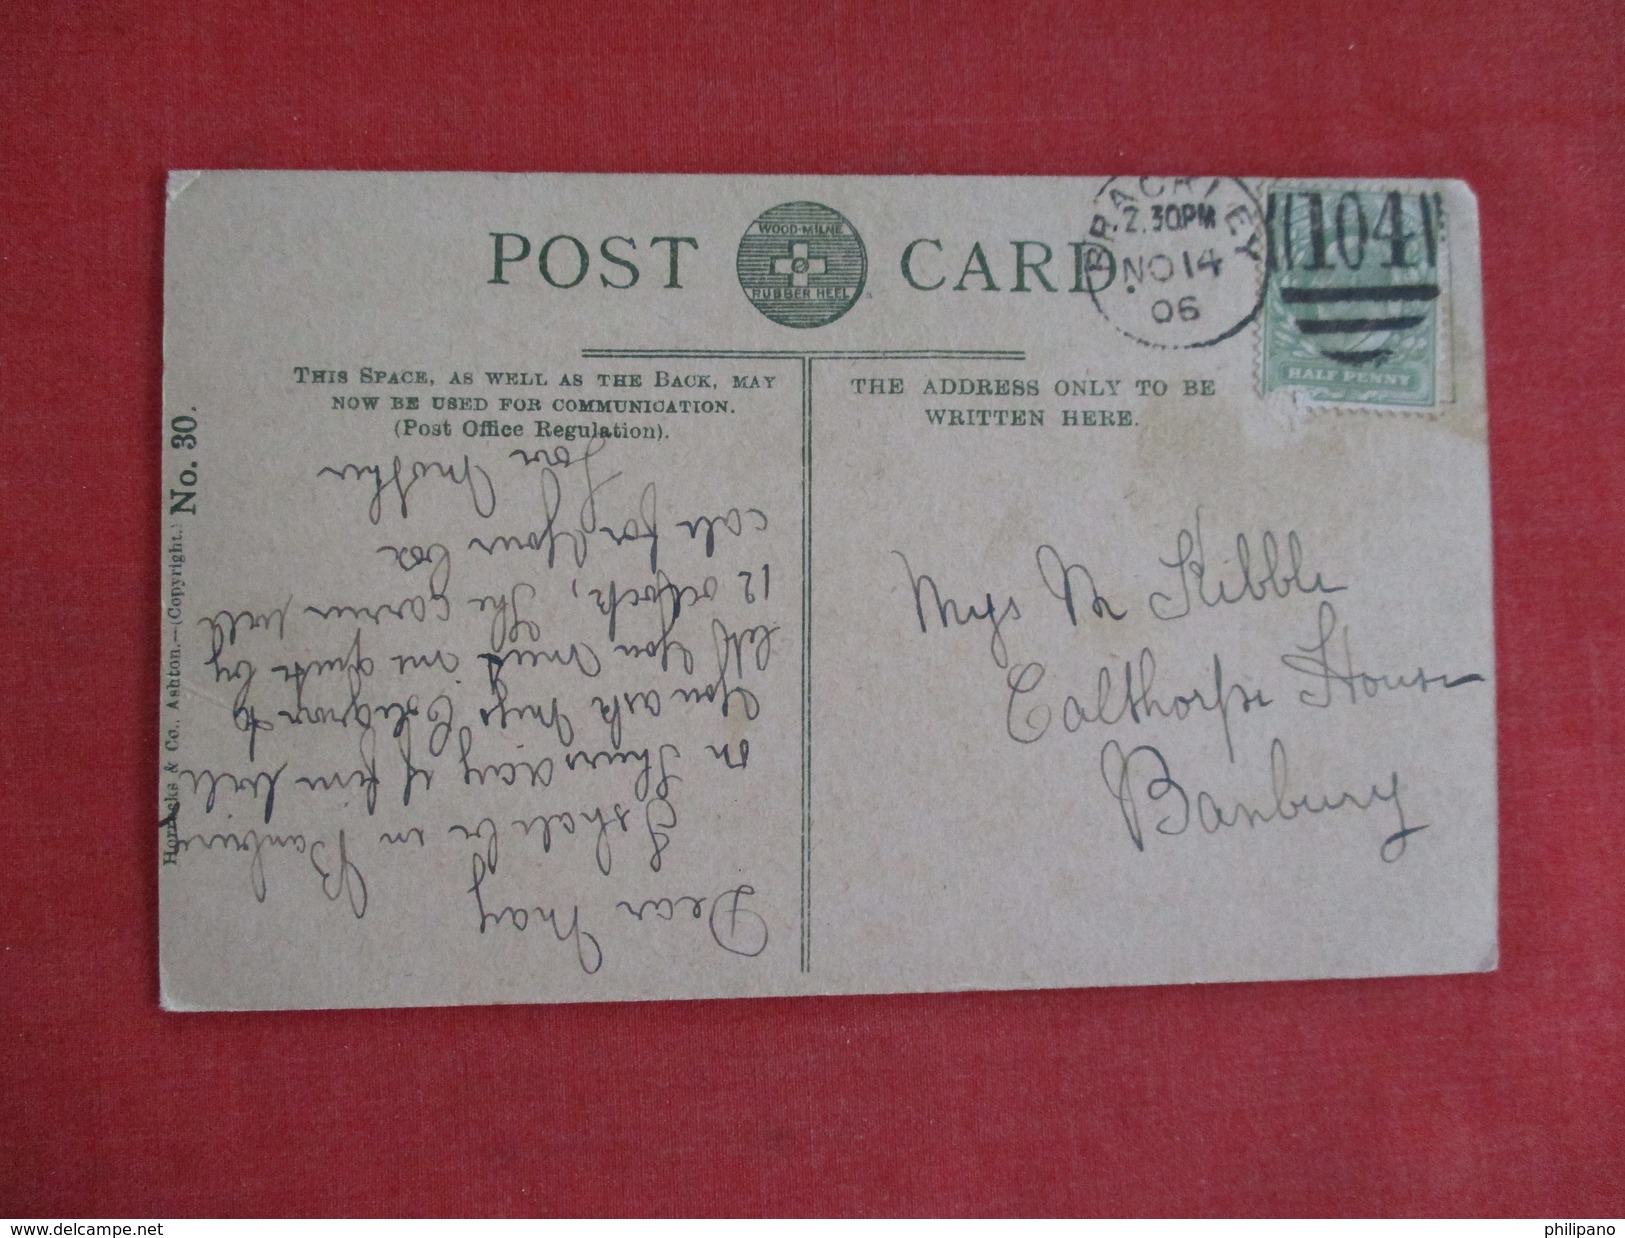 POST CARD.
WOOD-MILNE
RUBBER HEEL
BRACKLEY
2.30PM
NO 14
06
104
HALF PENNY
THIS SPACE, AS WELL AS THE BACK, MAY
NOW BE USED FOR COMMUNICATION.
(Post Office Regulation).
THE ADDRESS ONLY TO BE
WRITTEN HERE.
Horrocks & Co., Ashton.—(Copyright.) No. 30.
Dear May
I shall be in Banbury
on Thursday if fine will
you ask Mrs to
let you meet me quite by
12 oclock, The carrier will
call for your box
Your Mother
M Kibble
Calthorpe House
Banbury
delcampe.net
philipano